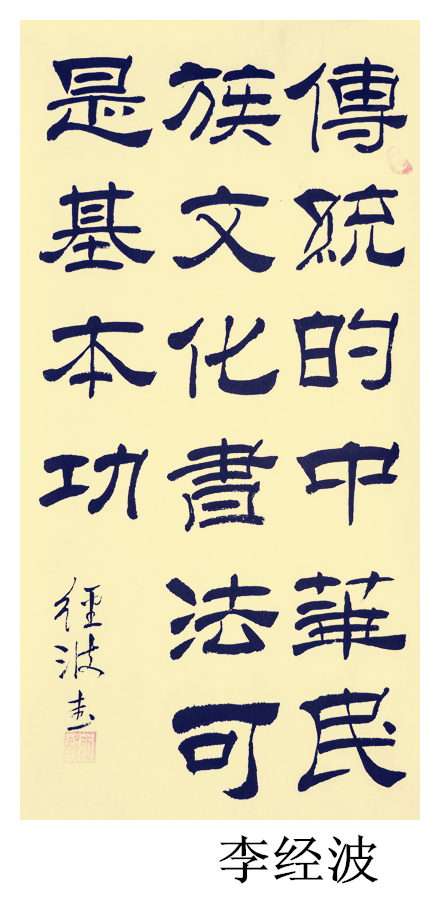 傳統的中華民
族文化書法可
是基本功
經波書
李经波